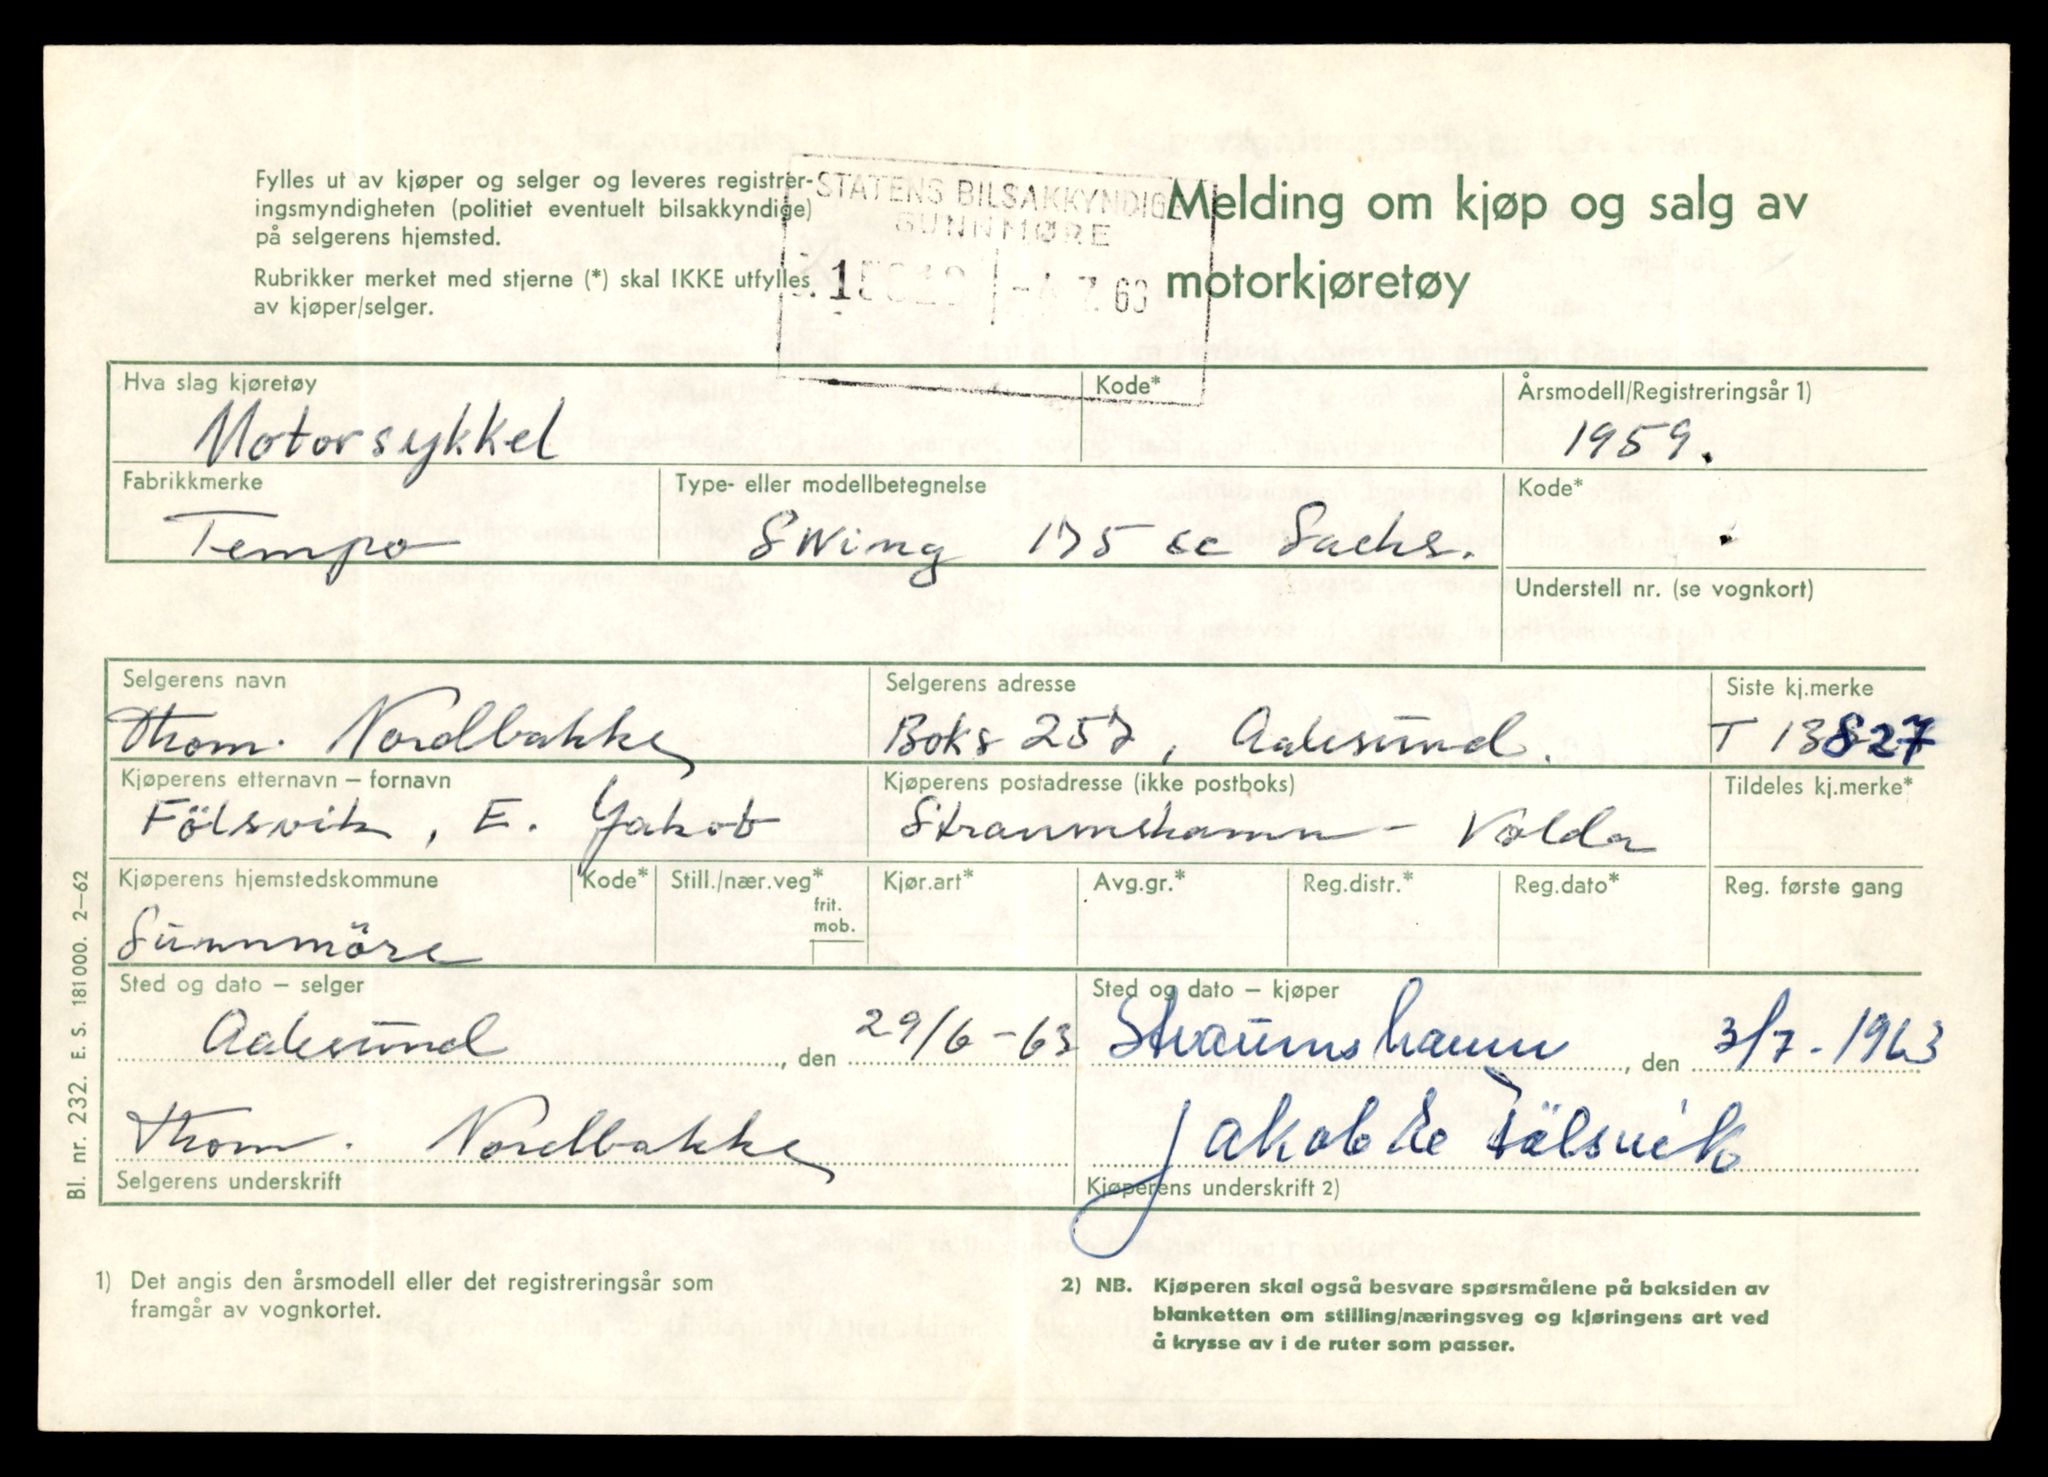 Fylles ut av kjøper og selger og leveres registrer-
ingsmyndigheten (politiet eventuelt bilsakkyndige)
på selgerens hjemsted.
Rubrikker merket med stjerne (*) skal IKKE utfylles
av kjøper/selger.
STATENS BILSAKKYNDIGE
SUNNMØRE
Melding om kjøp og salg av
motorkjøretøy
Hva slag kjøretøy Kode* Årsmodell/Registreringsår 1)
Motorsykkel 1959.
Fabrikkmerke Type- eller modellbetegnelse Kode*
Tempo Swing 175 cc Sachs.
Understell nr. (se vognkort)
Selgerens navn Selgerens adresse Siste kj.merke
Thom. Nordbakke Boks 257, Aalesund. T 13827
Kjøperens etternavn – fornavn Kjøperens postadresse (ikke postboks) Tildeles kj.merke*
Fölsvik, E. Jakob Straumshamn – Volda
Kjøperens hjemstedskommune Kode* Still./nær.veg* Kjør.art* Avg.gr.* Reg.distr.* Reg.dato* Reg. første gang
frit.
mob.
Sunnmöre
Sted og dato – selger Sted og dato – kjøper
Aalesund, den 29/6-63 Straumshamn, den 3/7-1963
Thom. Nordbakke Jakob E Fölsvik
Selgerens underskrift Kjøperens underskrift 2)
Bl. nr. 232. E. S. 181000. 2–62
1) Det angis den årsmodell eller det registreringsår som
framgår av vognkortet.
2) NB. Kjøperen skal også besvare spørsmålene på baksiden av
blanketten om stilling/næringsveg og kjøringens art ved
å krysse av i de ruter som passer.